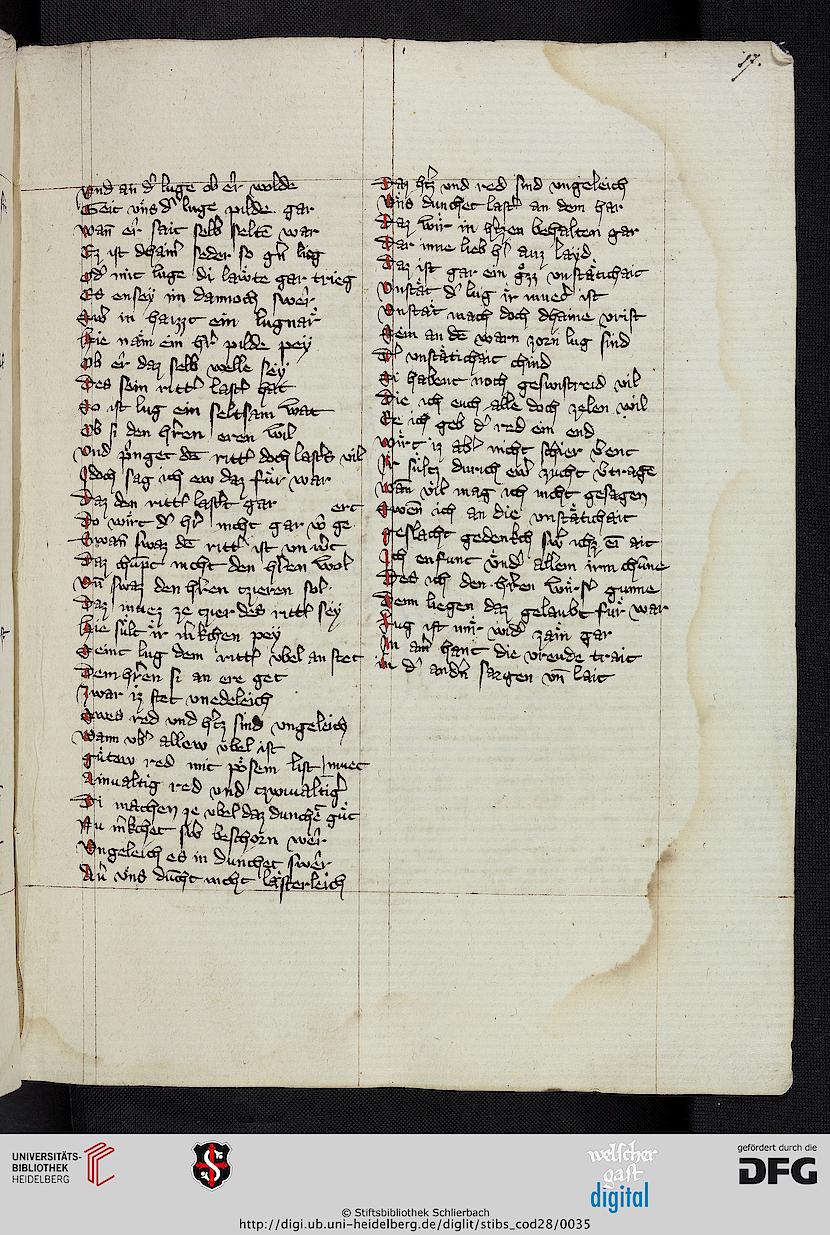 17.
Vnd an d' luge ob er wolde
Geit vns d' luge pilde gar
Wan er sait selb seltē war
Ez ist dhain' seder so g'n lieg
Od' mit luge di lawte gar trieg
Es ensey im dannoch swer
Swˢ in haizzt ein lugnar
Hie nam ein h'r pilde pey
Ob er daz selb welle sey
Des sein ritt' last' hat
So ist lug ein seltsam wat
Ob si den h'ren eren wil
Vnd p'nget dē ritt' doch lasters vil
Idoch sag ich ew daz für war
Daz den ritt' last't gar
Do wirt d' h'r nicht gar w' ge ert
Swan swaz dē ritt' ist vn w't
Daz chūpt nicht den h'ren wol
Vn̄ swaz den h'ren czieren sol
Daz muez ze czier des ritt' sey
Hie sült ir m'kchen pey
Seint lug dem ritt' vbel an stet
Dem h'ren si an ere get
Zwar iz stet vnedeleich
Swes red vnd h'tz sind vngeleich
Wann vb' allew vbel ist
Gůtew red mit pösem list
Ainualtig red vnd czwiualtig' muet
Di machen ze vbel daz dunchē gůt
Nu m'kchet swˢ beschorn wer
Vngeleich es in dunchet swer
Nu vns dūcht nicht lasterleich
Daz h'tz vnd red sind vngeleich
Vns dunchet last' an dem har
Daz wir in h'tzen behalten gar
Dar inne lieb h' auz layd
Daz ist gar ein gözz vnstätichait
Vnstat d' lug ir muet' ist
Vnstat mach doch dhaine vrist
Sein an dē warn zorn lug sind
D' vnstätichait chind
Si habent noch geswistreid vil
Die ich euch alle doch zelen wil
Ee ich geb d' red ein end
Wirt iz ab' nicht schier v'ent
Ir sültz durich ew' zucht v'trage
Wan vil mag ich nicht gesagen
Swen ich an die vnstätichait
Geslacht gedenkch swˢ ichz ēi ait
Ich enfunt vnd' allem irm chunne
Des ich den h'ren wir's' gunne
Denn liegen daz gelaubt für war
Lug ist mir wid' zäm gar
In ain' hant die vreude trait
In d' andn̄ sargen vn̄ lait
UNIVERSITÄTS-
BIBLIOTHEK
HEIDELBERG
welscher
gast
digital
gefördert durch die
DFG
© Stiftsbibliothek Schlierbach
http://digi.ub.uni-heidelberg.de/diglit/stibs_cod28/0035